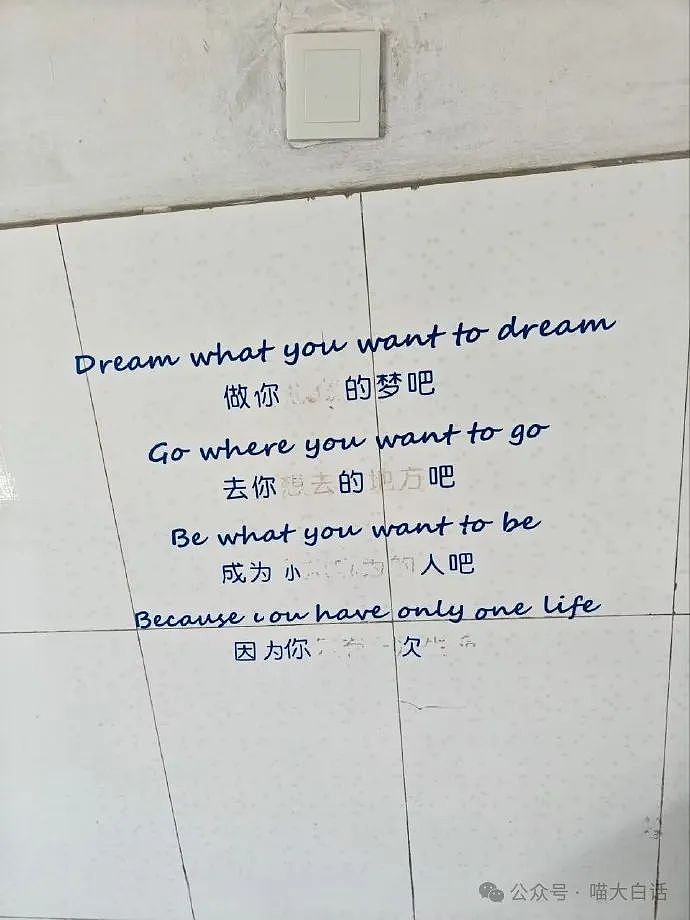 Dream what you want to dream
做你 的梦吧
Go where you want to go
去你想去的地方吧
Be what you want to be
成为 小 人吧
Because ou have only one life
因为你 欠
公众号 · 喵大白话